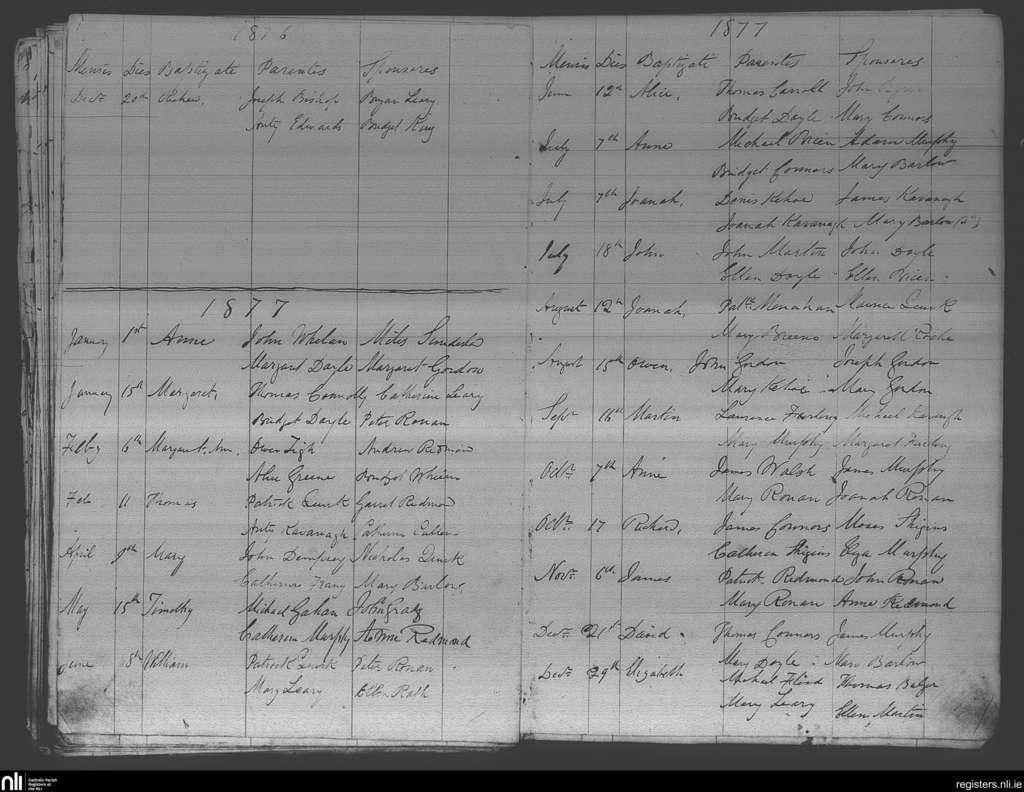 1876
Menses Dies Baptizate Parentes Sponsores
Decr 20th Joseph Bishop Bryan Leary
Anty Edwards Bridget
1877
January 1st Anne John Whelan Miles
Margaret Doyle Margaret Gordon
January 15th Margaret, Thomas Connolly Catherine Leary
Bridget Doyle Peter Ronan
Feby 6th Margaret Ann, Owen Andrew Redmond
Alice Greene Bridget Whelan
Feb 11 Thomas Patrick Quirk Garret Redmond
Anty Kavanagh
April 8th Mary John Dempsey Nicholas Quirk
Catherine Mary Barlow
May 15th Timothy Michael Gahan John
Catherine Murphy Anne Redmond
June 8th William Patrick Quirk Peter Ronan
Mary Leary Ellen Rath
1877
Menses Dies Baptizate Parentes Sponsores
June 12th Alice, Thomas Carroll John
Bridget Doyle Mary Connors
July 7th Anne Michael Brien Adam Murphy
Bridget Connors Mary Barlow
July 7th Joanah, Denis Kehoe James Kavanagh
Joanah Kavanagh Mary Barlow
July 18th John John Martin John Doyle
Ellen Doyle Ellen Brien
August 12th Joanah, Patk Monahan Quirk
Mary Breens Margaret Roche
August 15th Owen, John Gordon Joseph Gordon
Mary Kehoe Mary Gordon
Sepr 16th Martin Laurence Furlong Michael Kavanagh
Mary Murphy Margaret Furlong
Octr 7th Anne James Walsh James Murphy
Mary Ronan Joanah Ronan
Octr 17 Richard, James Connors Moses
Catherine Eliza Murphy
Novr 6th James Patrick Redmond John Ronan
Mary Ronan Anne Redmond
Decr 21st David Thomas Connors James Murphy
Mary Doyle Mary Barlow
Decr 29th Elizabeth Michael Flood Thomas Bolger
Mary Leary Ellen Martin
nli Catholic Parish Registers at the NLI
registers.nli.ie